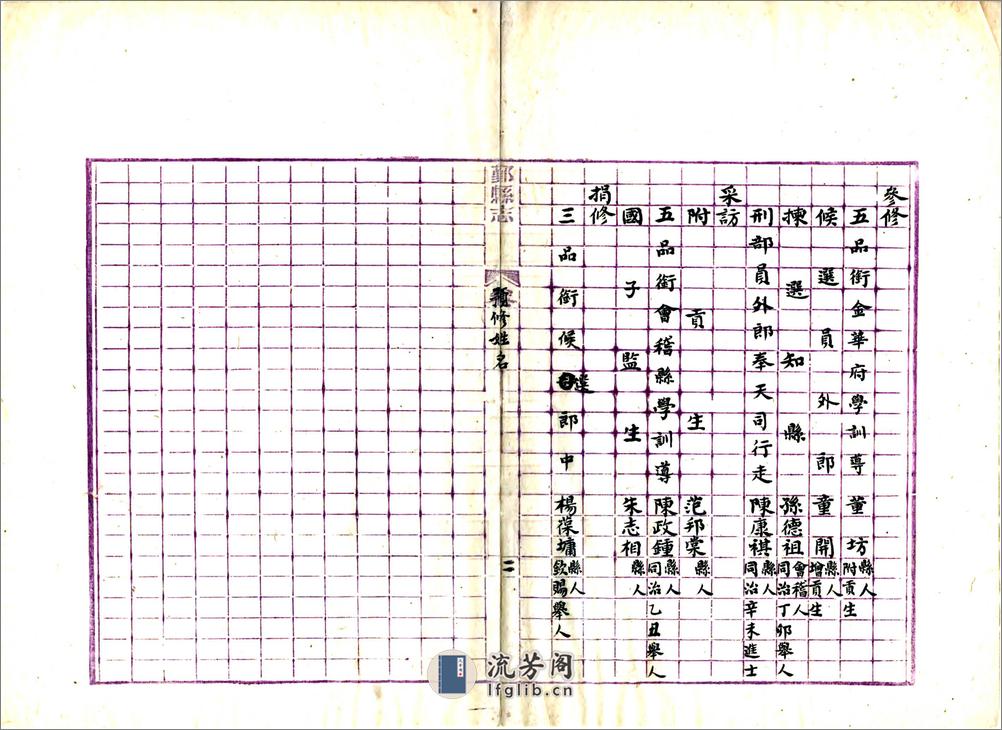 參修
五品銜金華府學訓導董坊縣人附貢生
候選員外郎童開縣人增貢生
揀選知縣孫德祖會稽人同治丁卯舉人
刑部員外郎奉天司行走陳康祺縣人同治辛未進士
采訪
附貢生范邦棠縣人
五品銜會稽縣學訓導陳政鍾縣人同治乙丑舉人
國子監生朱志相縣人
捐修
三品銜候選郎中楊葆墉縣人欽賜舉人
鄞縣志
修姓名
二
流芳阁
lfglib.cn